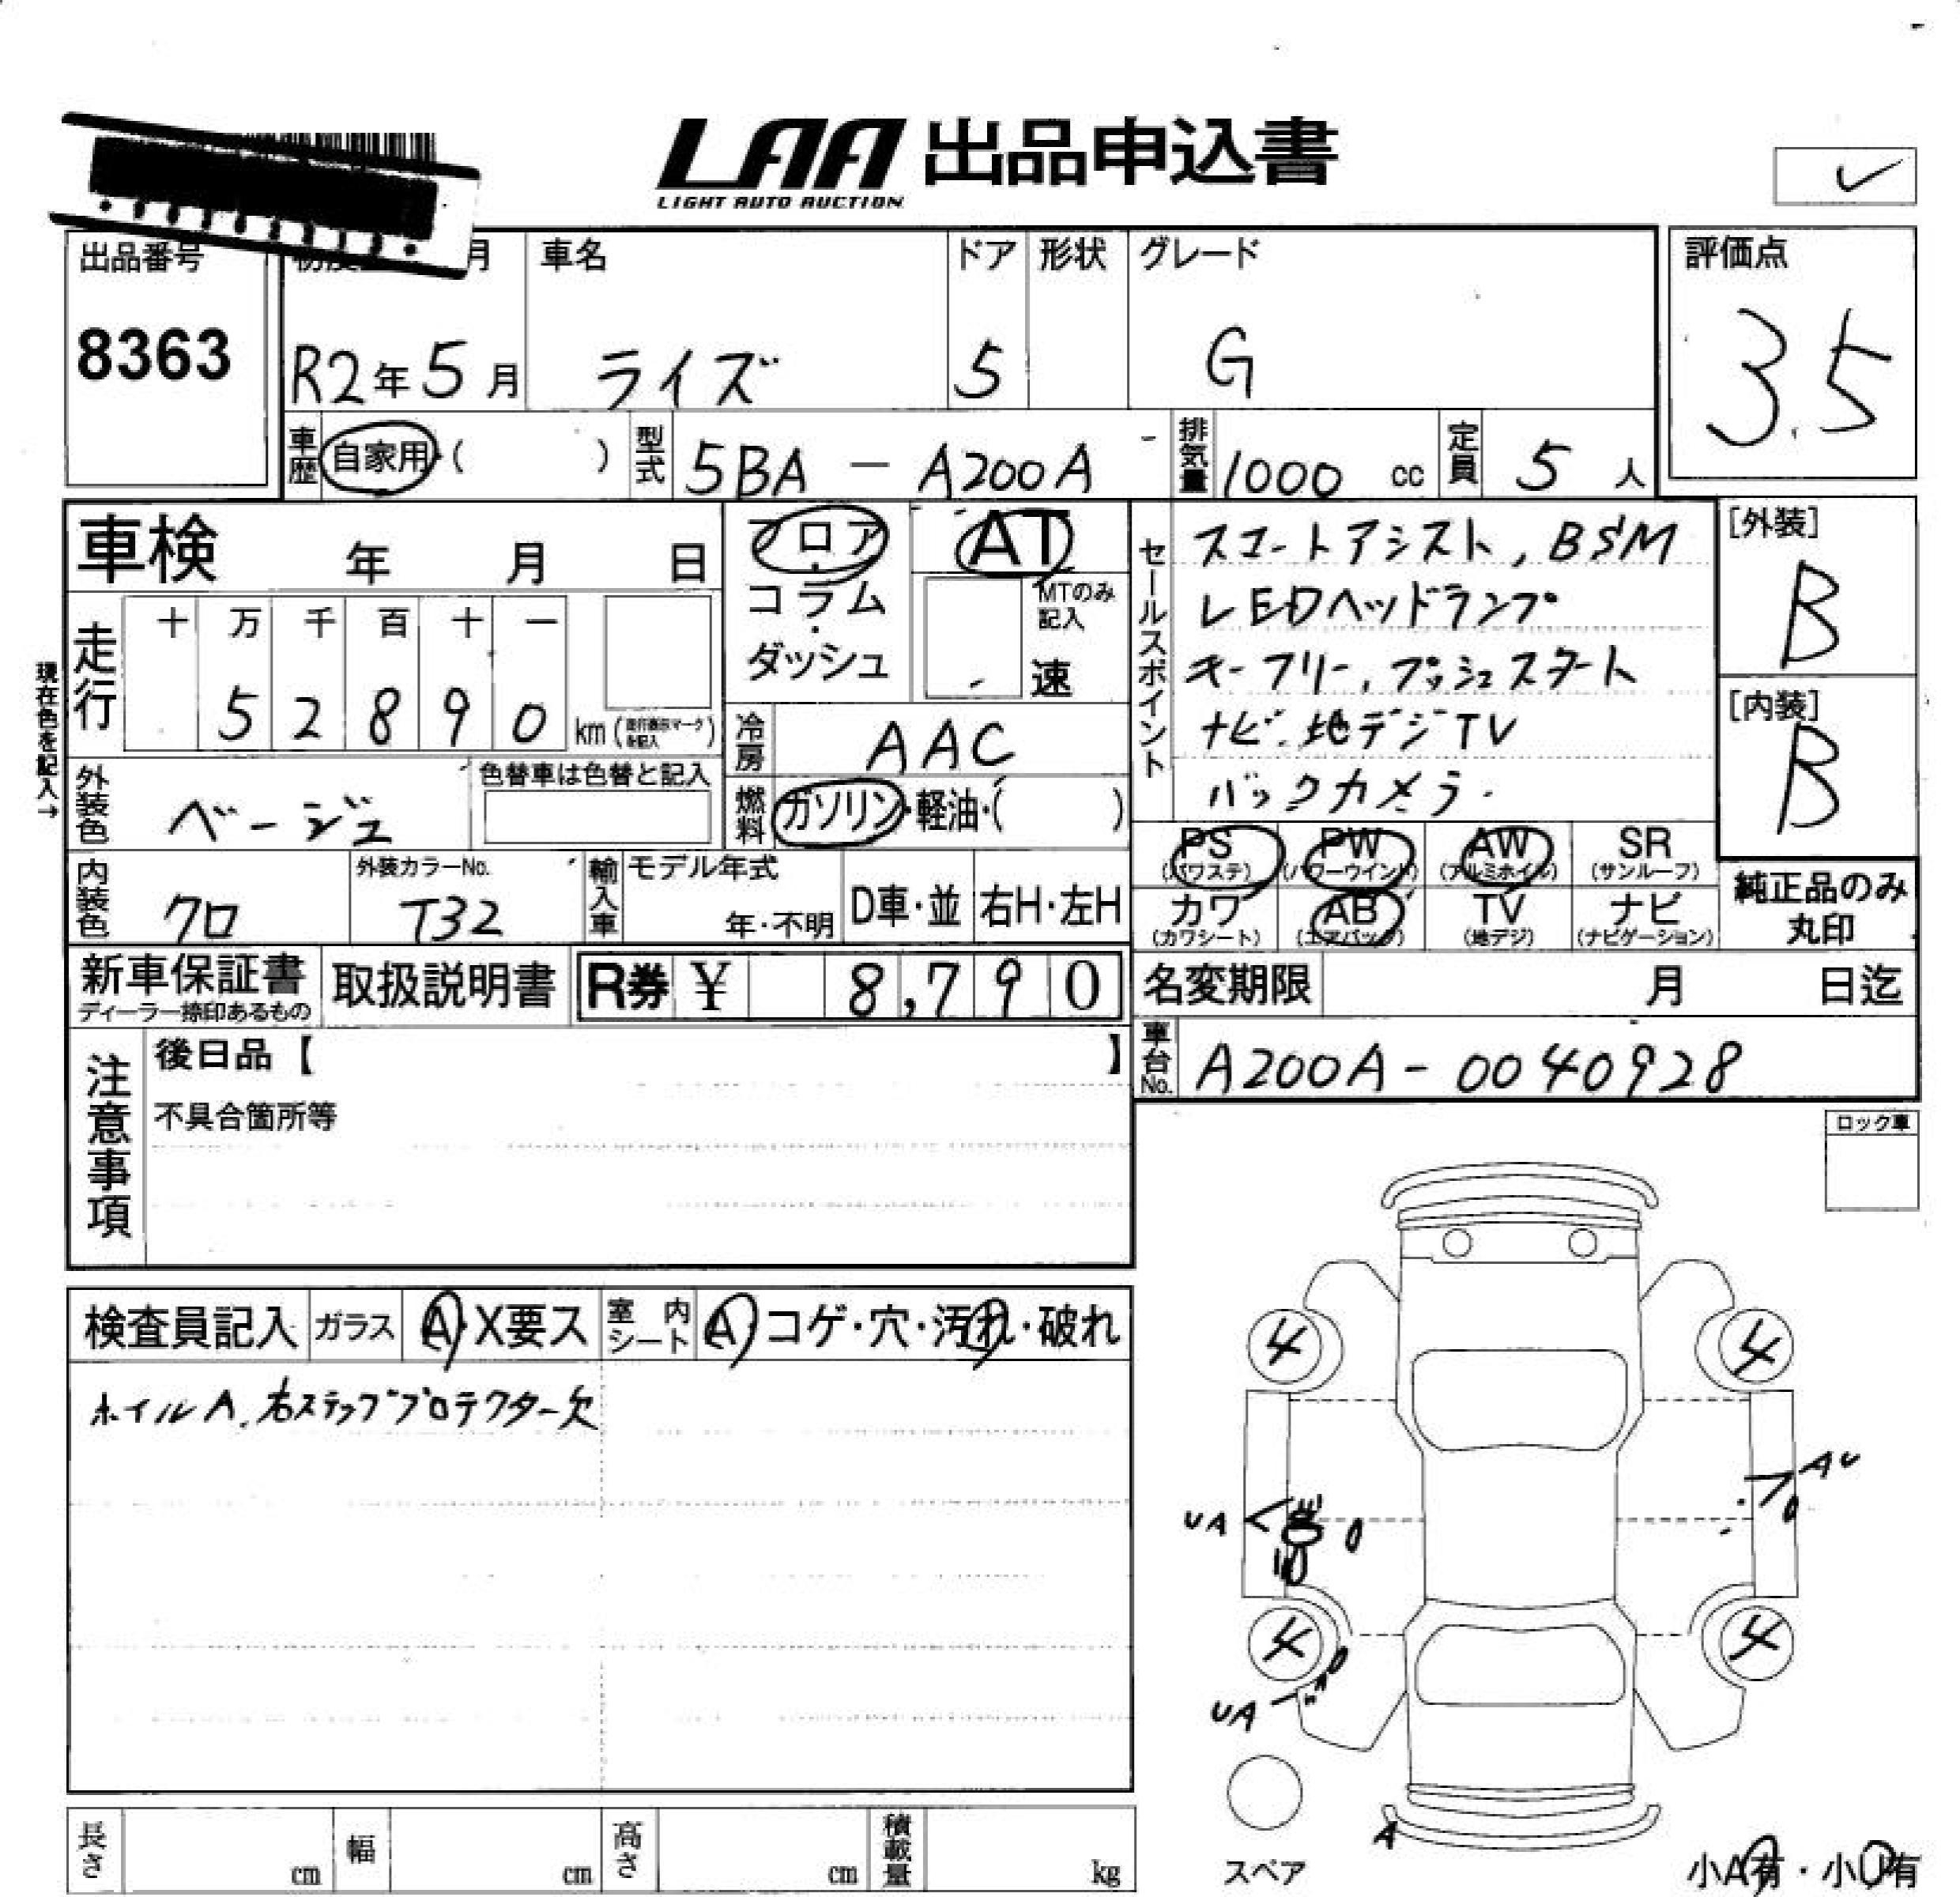 LAA 出品申込書
LIGHT AUTO AUCTION
出品番号
8363
月
R2年5月
車名
ライズ
ドア
5
形状
グレード
G
評価点
3.5
車歴 自家用・( )
型式 5BA - A200A
排気量 1000 cc
定員 5 人
車検 年 月 日
現在色を記入→
走行 十 万 千 百 十 一
5 2 8 9 0 km
外装色 ベージュ
色替車は色替と記入
内装色 クロ
外装カラーNo.
T32
輸入車 モデル年式
年・不明
D車・並 右H・左H
フロア・コラム・ダッシュ
AT
MTのみ記入
速
冷房 AAC
燃料 ガソリン・軽油・( )
セールスポイント
スマートアシスト, BSM
LEDヘッドランプ
キーフリー, プッシュスタート
ナビ.地デジTV
バックカメラ.
[外装]
B
[内装]
B
PS (パワステ) PW (パワーウインド) AW (アルミホイル) SR (サンルーフ)
カワ (カワシート) AB (エアバック) TV (地デジ) ナビ (ナビゲーション)
純正品のみ丸印
新車保証書
ディーラー捺印あるもの
取扱説明書
R券 ¥ 8,790
名変期限 月 日迄
車台No. A200A - 0040928
注意事項
後日品【 】
不具合箇所等
ロック車
検査員記入 ガラス A・X要ス 室内シート A・コゲ・穴・汚れ・破れ
ホイルA. 右ステッププロテクター欠
4 4
AU
UA
4 4
UA
A
スペア
小A有・小U有
長さ cm 幅 cm 高さ cm 積載量 kg